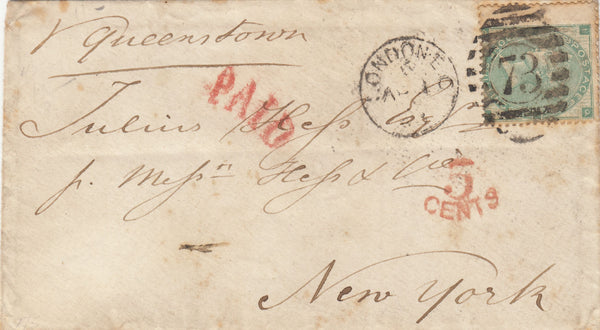 p Queenstown
PAID
LONDON E.C
73
POSTAGE
Julius Hess Esqre
p. Messrs Hess & Co
5
CENTS
New York